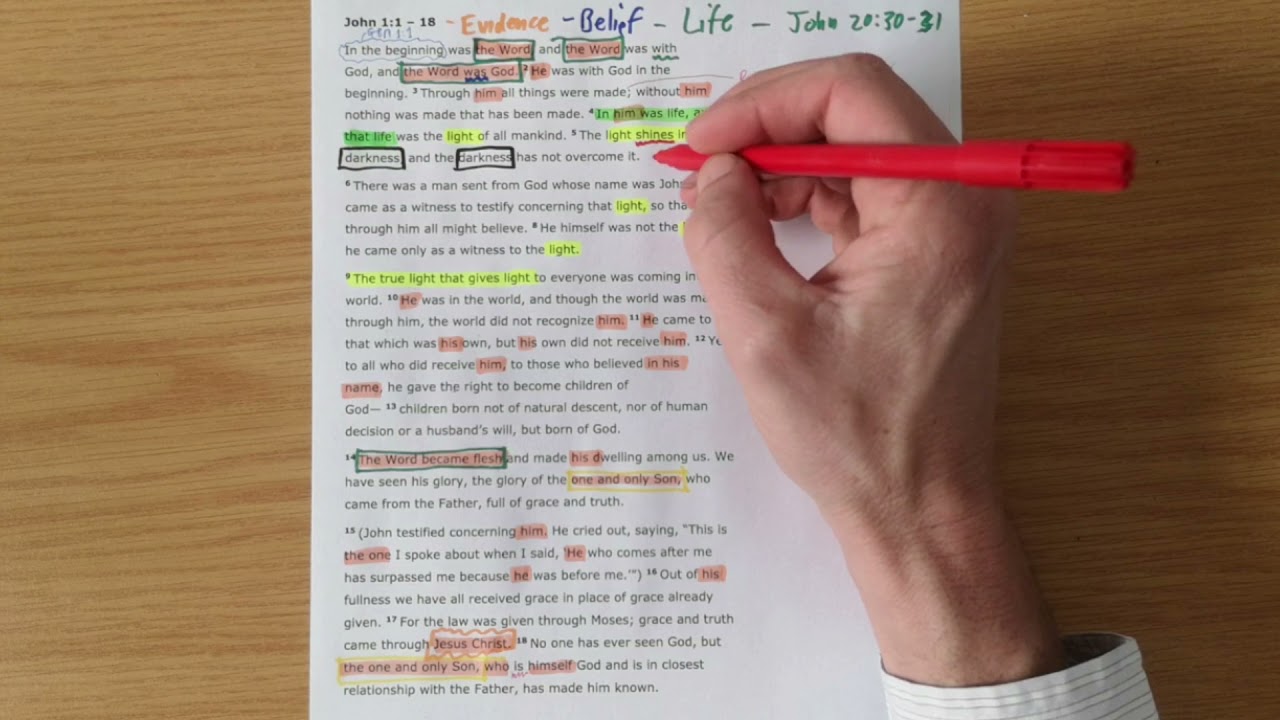 John 1:1 – 18 - Evidence - Belief - Life - John 20:30-31
In the beginning was the Word, and the Word was with
God, and the Word was God. ² He was with God in the
beginning. ³ Through him all things were made; without him
nothing was made that has been made. ⁴ In him was life,
that life was the light of all mankind. ⁵ The light shines in
darkness, and the darkness has not overcome it.
⁶ There was a man sent from God whose name was
came as a witness to testify concerning that light, so
through him all might believe. ⁸ He himself was not the
he came only as a witness to the light.
⁹ The true light that gives light to everyone was coming in
world. ¹⁰ He was in the world, and though the world was
through him, the world did not recognize him. ¹¹ He came to
that which was his own, but his own did not receive him. ¹²
to all who did receive him, to those who believed in his
name, he gave the right to become children of
God— ¹³ children born not of natural descent, nor of human
decision or a husband's will, but born of God.
¹⁴ The Word became flesh and made his dwelling among us. We
have seen his glory, the glory of the one and only Son, who
came from the Father, full of grace and truth.
¹⁵ (John testified concerning him. He cried out, saying, "This is
the one I spoke about when I said, 'He who comes after me
has surpassed me because he was before me.'") ¹⁶ Out of his
fullness we have all received grace in place of grace already
given. ¹⁷ For the law was given through Moses; grace and truth
came through Jesus Christ. ¹⁸ No one has ever seen God, but
the one and only Son, who is himself God and is in closest
relationship with the Father, has made him known.